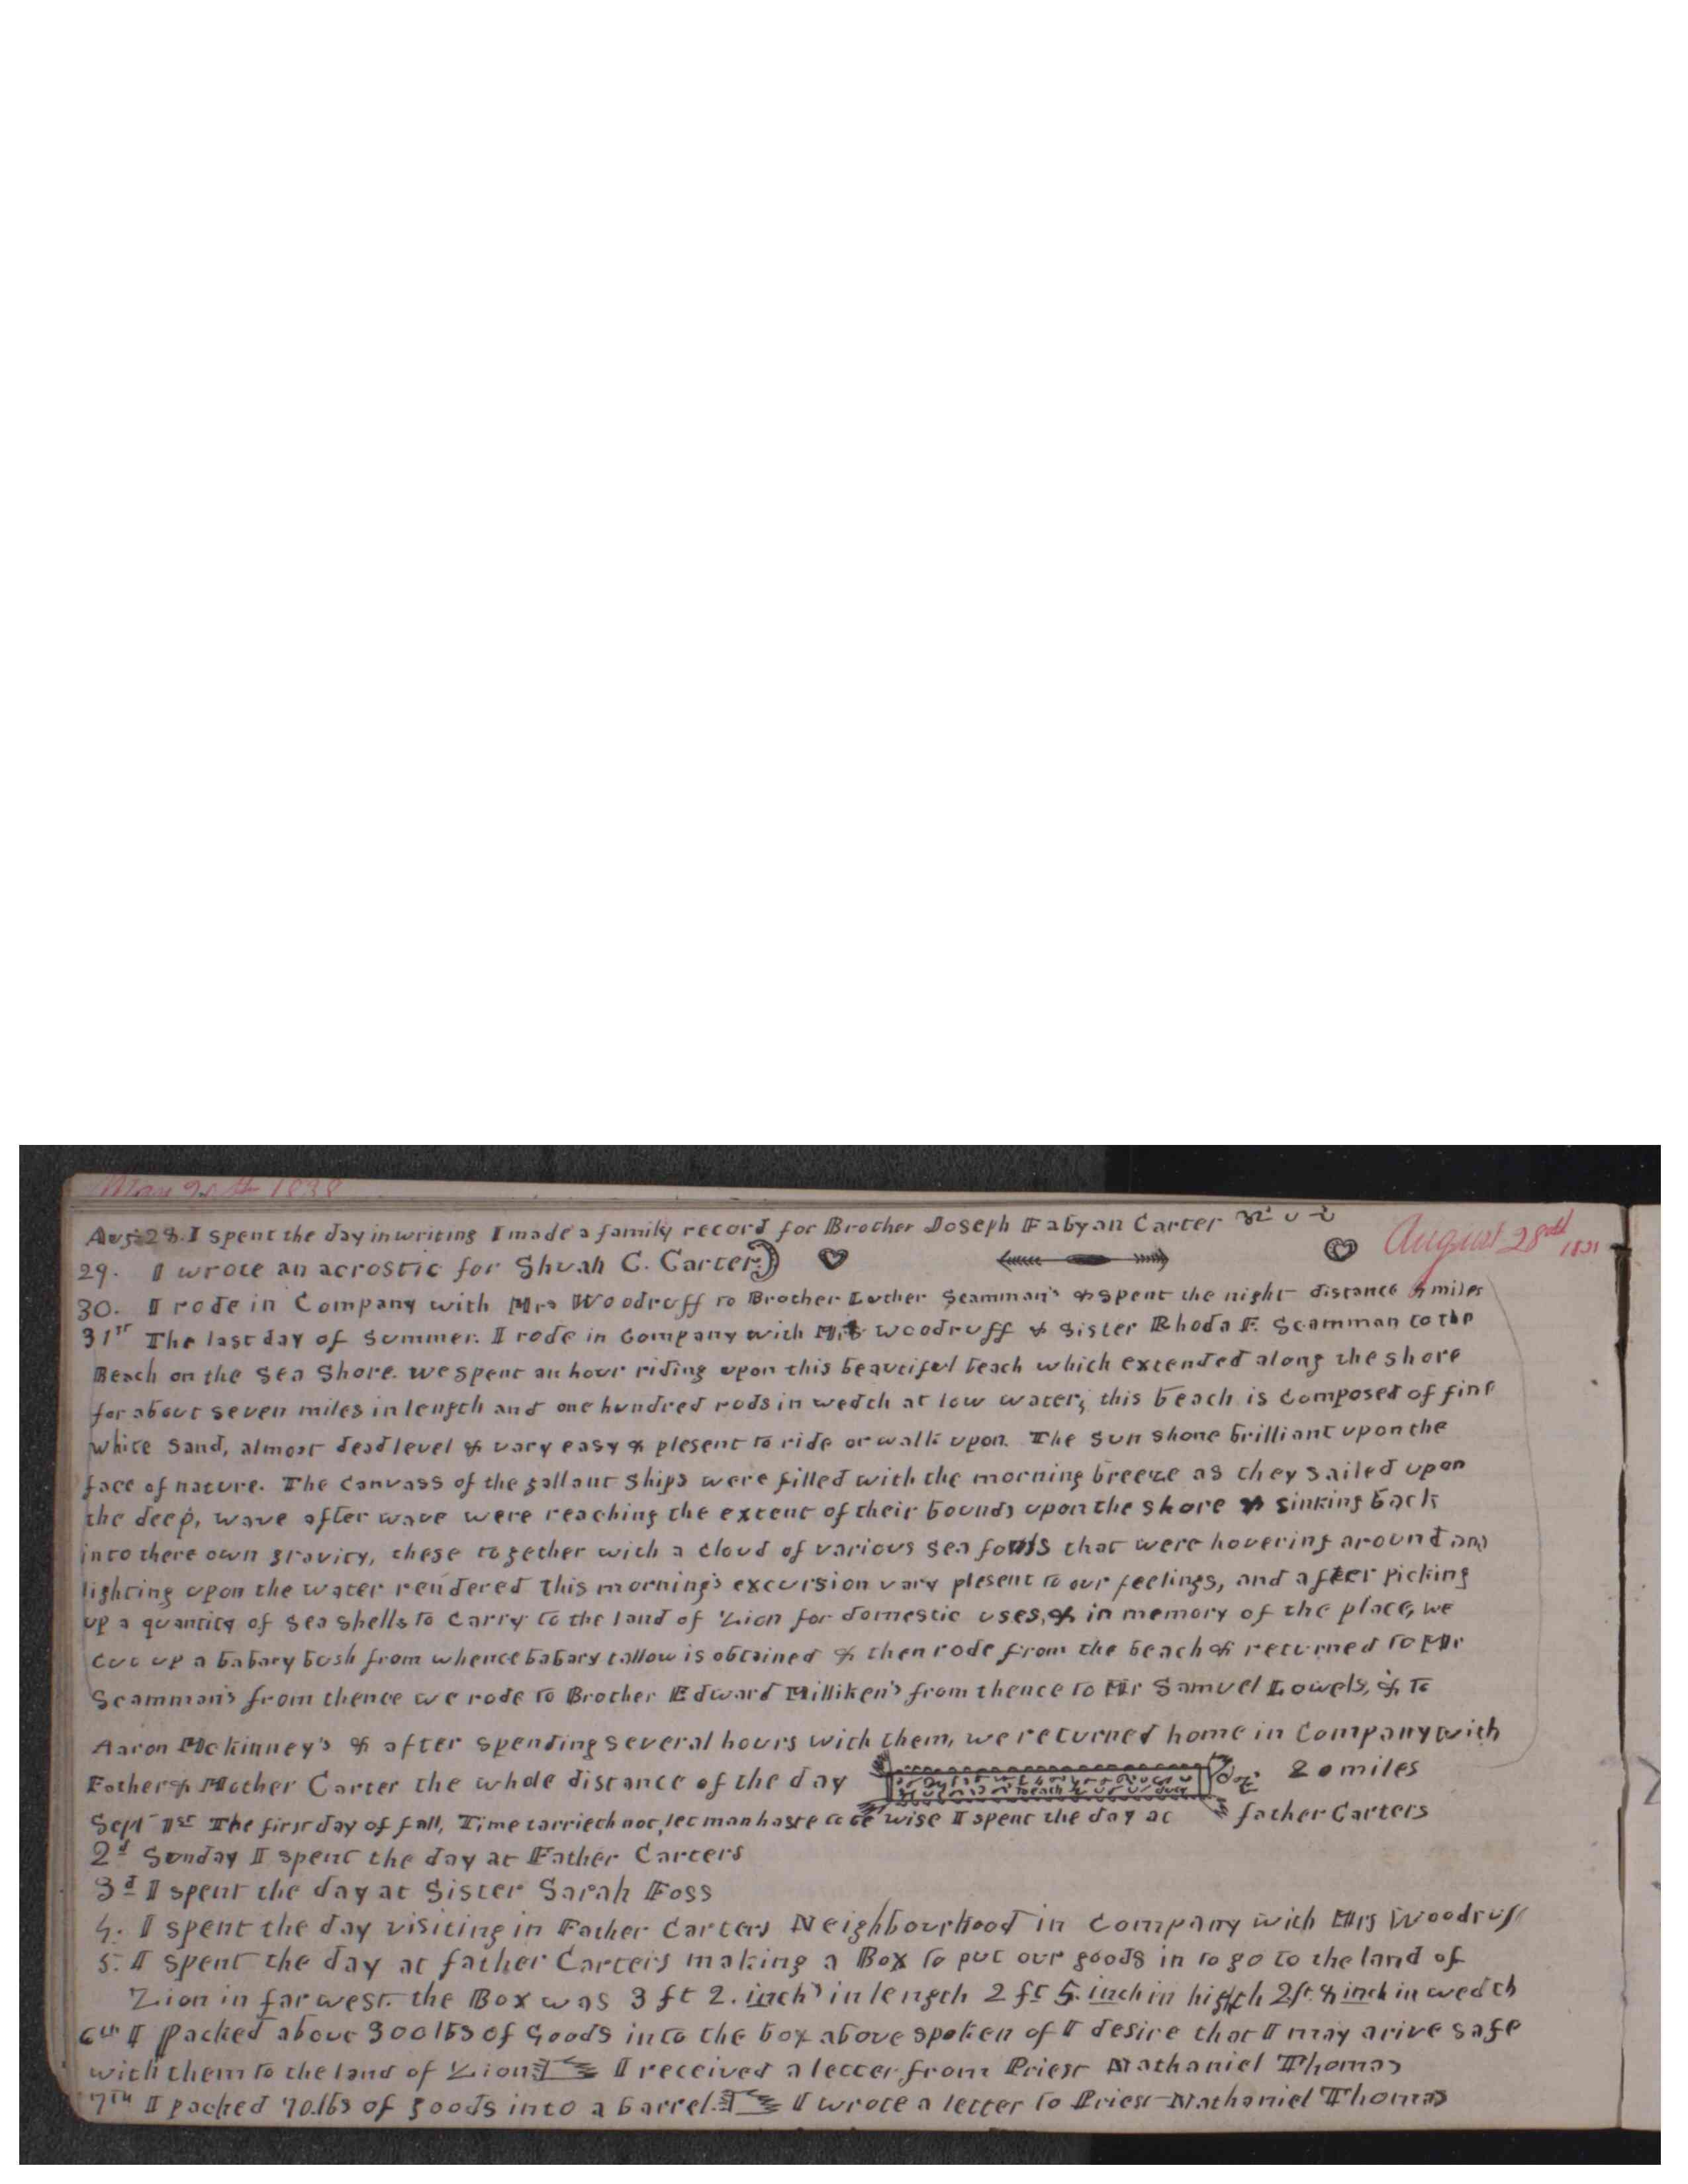 May 20th 1838
August 28th
Aug 28. I spent the day in writing I made a family record for Brother Joseph Fabyan Carter
29. I wrote an acrostic for Shuah C. Carter
30. I rode in Company with Mrs Woodruff to Brother Luther Scamman's & spent the night distance 4 miles
31st The last day of Summer. I rode in Company with Mrs Woodruff & Sister Rhoda F. Scamman to the
Beach on the Sea Shore. we spent an hour riding upon this beautiful beach which extended along the shore
for about seven miles in length and one hundred rods in wedth at low water; this beach is composed of fine
white sand, almost dead level & vary easy & plesent to ride or walk upon. The Sun shone brilliant upon the
face of nature. The Canvass of the gallant Ships were filled with the morning breeze as they sailed upon
the deep, wave after wave were reaching the extent of their bounds upon the shore & sinking back
into there own gravity, these together with a cloud of various sea fowls that were hovering around and
lighting upon the water rendered this morning's excursion vary plesent to our feelings, and after picking
up a quantity of sea shells to Carry to the land of Zion for domestic uses, & in memory of the place, we
cut up a babary bush from whence babary tallow is obtained & then rode from the beach & returned to Mr
Scamman's from thence we rode to Brother Edward Milliken's from thence to Mr Samuel Lowels, & to
Aaron Mckinney's & after spending several hours with them, we returned home in Company with
Father & Mother Carter the whole distance of the day 20 miles
Sept 1st The first day of fall, Time tarrieth not, let man haste to be wise I spent the day at father Carters
2d Sunday I spent the day at Father Carters
3d I spent the day at Sister Sarah Foss
4. I spent the day visiting in Father Carters Neighbourhood in Company with Mrs Woodruff
5. I spent the day at father Carters making a Box to put our goods in to go to the land of
Zion in far west. the Box was 3 ft 2. inch in length 2 ft 5. inch in highth 2 ft. 4 inch in wedth
6th I Packed about 300 lbs of Goods into the box above spoken of I desire that I may arive safe
with them to the land of Zion I received a letter from Priest Nathaniel Thomas
7th I packed 70. lbs of goods into a barrel. I wrote a letter to Priest Nathaniel Thomas